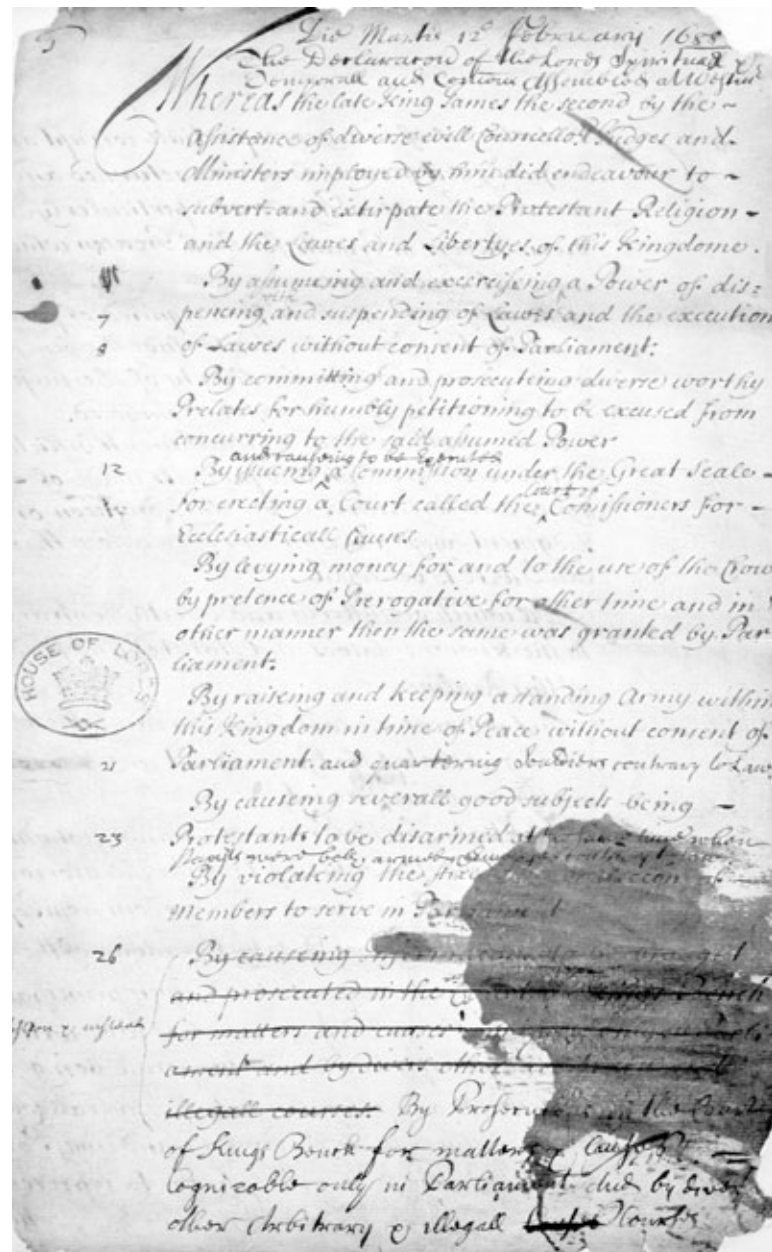 Die Martis 12º february 1688
The Declaration of the Lords Spirituall &
Temporall and Com̄ons Assembled at Westm̄r
Whereas the late King James the second by the
Assistance of diverse evill Councello.rs Judges and
Ministers imployed by him did endeavour to
subvert and extirpate the Protestant Religion
and the Lawes and Libertyes of this Kingdome.
By assumeing and exerciseing a Power of dis=
7 pencing with and suspending of Lawes and the execution
8 of Lawes without consent of Parliament:
By committing and prosecuteing diverse worthy
Prelates for humbly petitioning to be excused from
concurring to the said assumed Power
and causing to be executed
12 By issueing a Commission under the Great Seale
Court of
for erecting a Court called the Comissioners for
Ecclesiasticall Causes
By levying money for and to the use of the Crow
by pretence of Prerogative for other time and in
other manner then the same was granted by Par
liament:
HOUSE OF LORDS
By raiseing and keeping a standing Army within
this Kingdom in time of Peace without consent of
21 Parliament and quartering souldiers contrary to Law
By causeing severall good subjects being
23 Protestants to be disarmed at the same time when
Papists were both armed contrary to law
By violateing the
Members to serve in Parliament
26 By causeing
and prosecuted in the Kings Bench
for matters and causes
ament and by divers other
illegall courses. By Prosecutions in the Court
of Kings Bench for matters & Causes
Cognizable only in Parliament and by divers
other Arbitrary & illegall Causes Courses